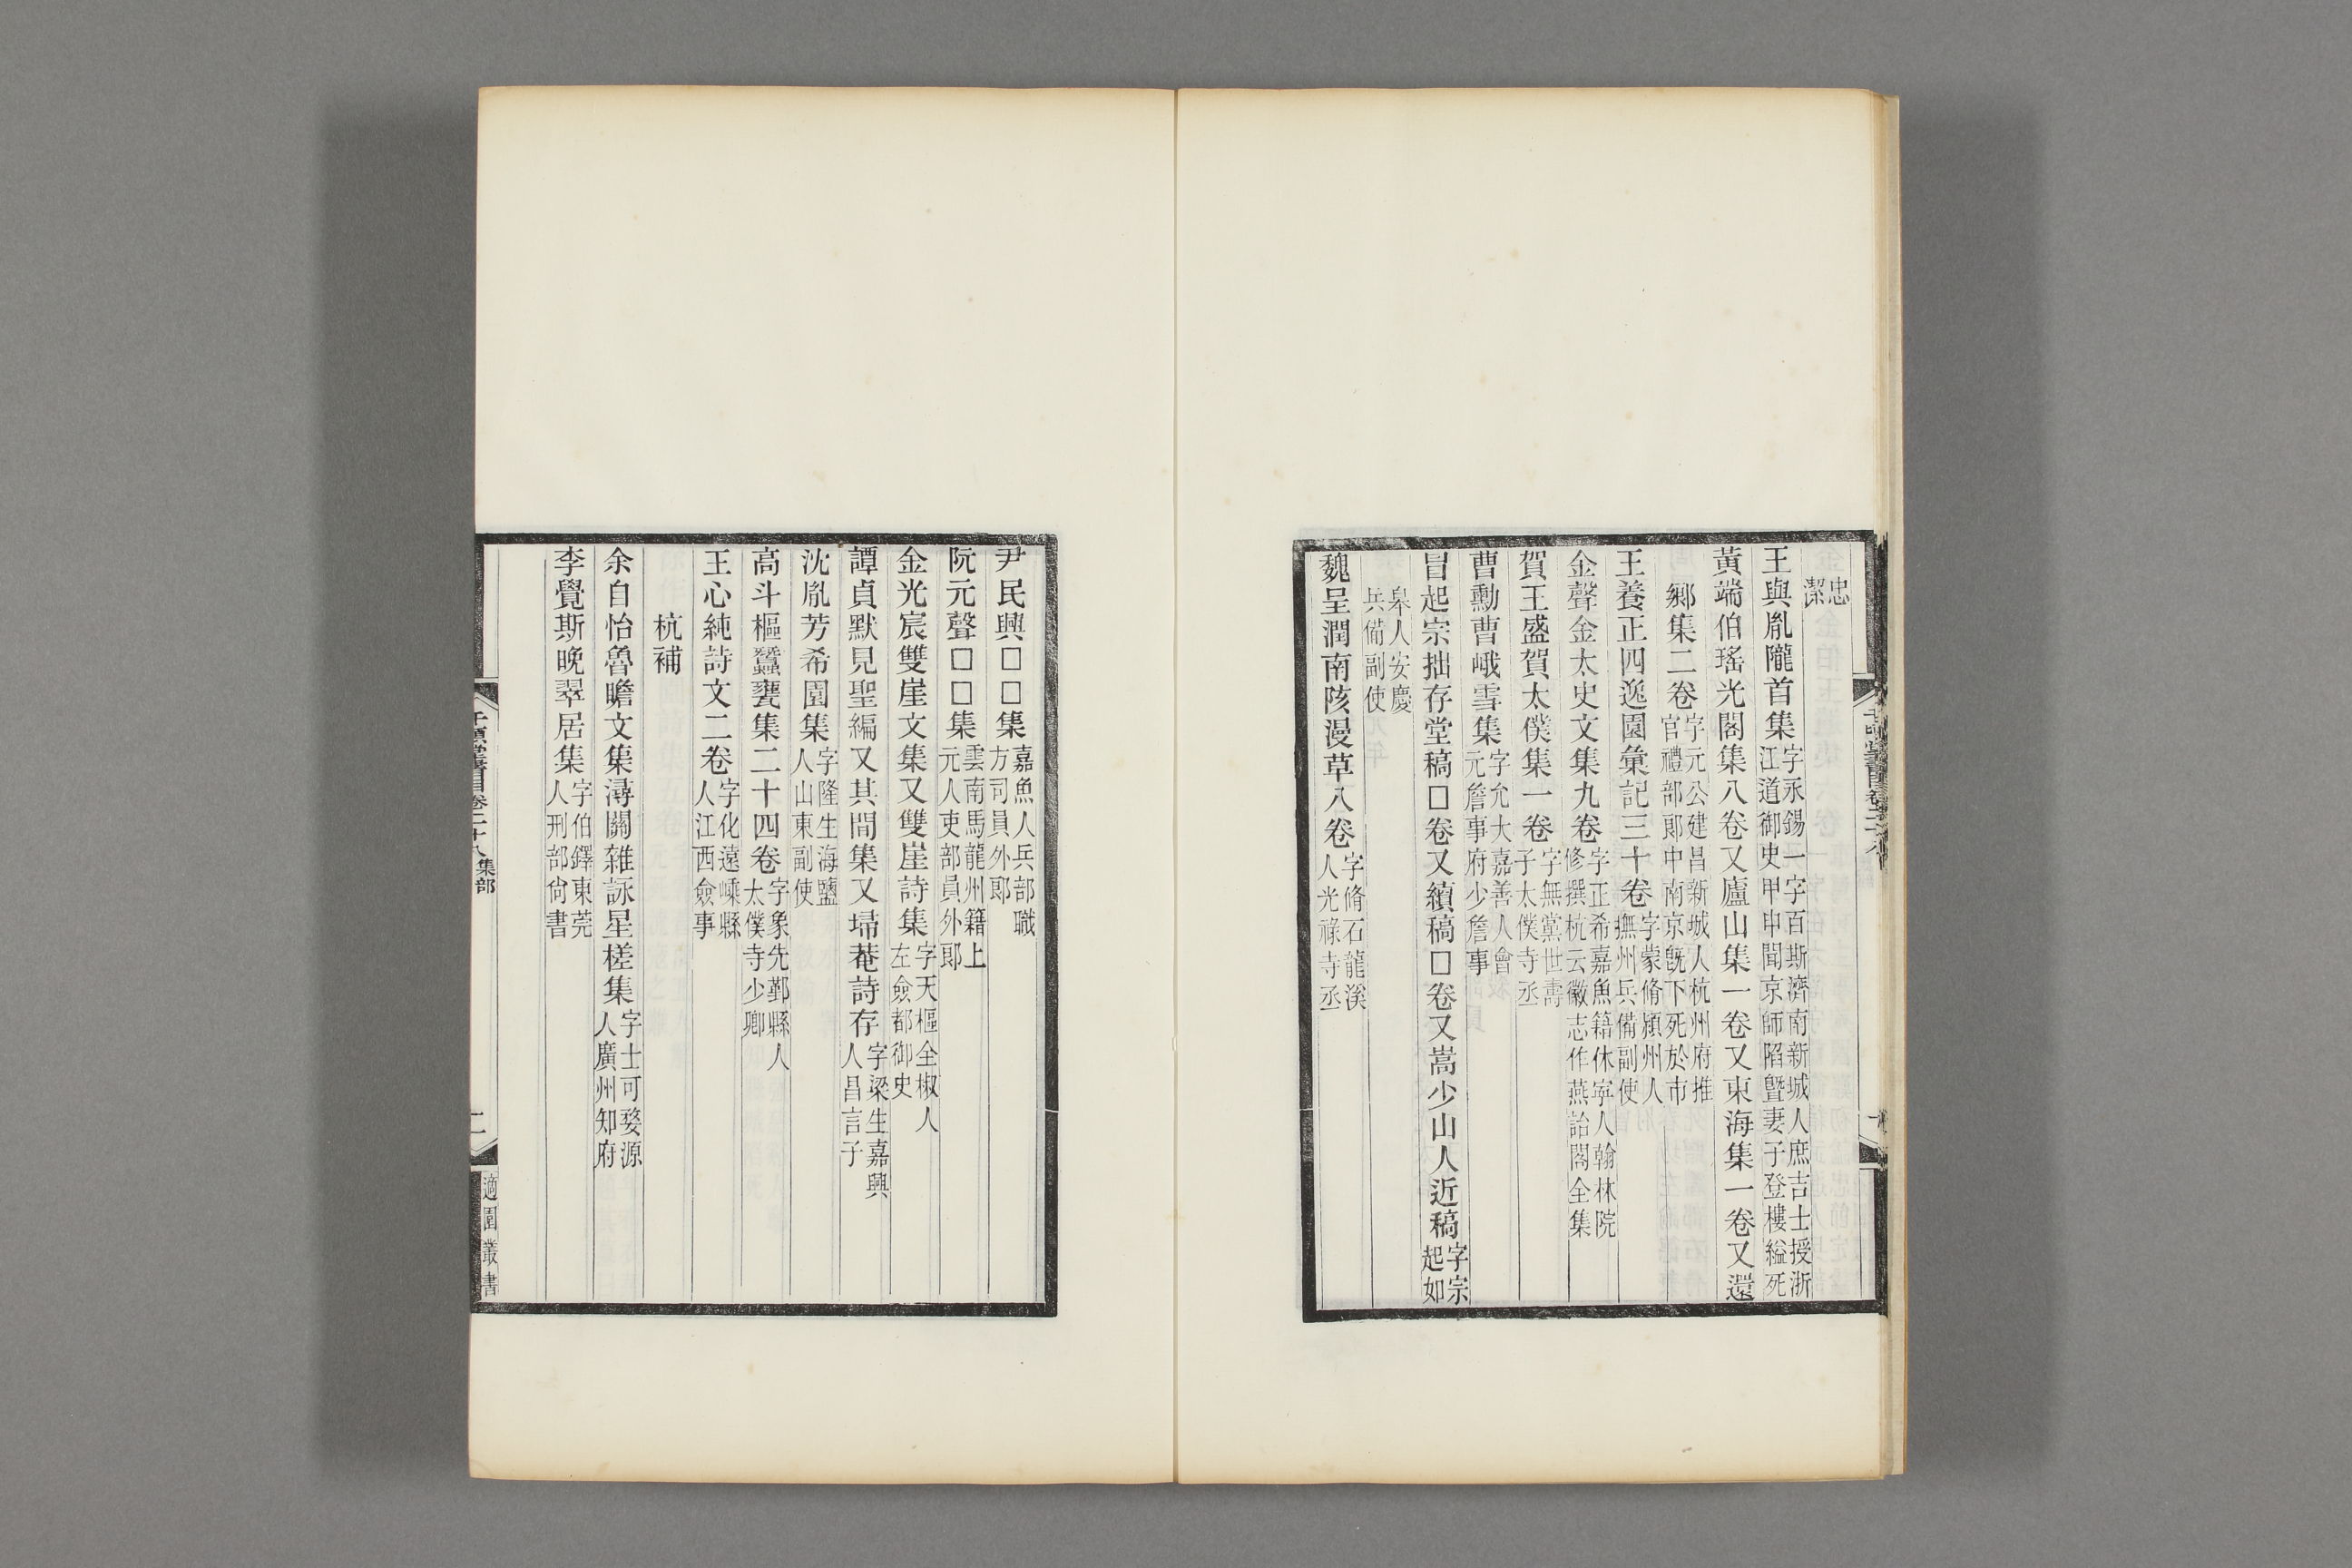 忠潔
王與胤隴首集字永錫一字百斯濟南新城人庶吉士授浙江道御史甲申聞京師陷曁妻子登樓縊死
黃端伯瑤光閣集八卷又廬山集一卷又東海集一卷又還
鄉集二卷字元公建昌新城人杭州府推官禮部郞中南京旣下死於市
王養正四逸園彙記三十卷字蒙脩潁州人撫州兵備副使
金聲金太史文集九卷字正希嘉魚籍休寧人翰林院修撰杭云徽志作燕詒閣全集
賀王盛賀太僕集一卷字無黨世壽子太僕寺丞
曹勳曹峨雪集字允大嘉善人會元詹事府少詹事
冒起宗拙存堂稿□卷又續稿□卷又嵩少山人近稿字宗起如
皋人安慶兵備副使
魏呈潤南陔漫草八卷字脩石龍溪人光祿寺丞
尹民興□□集嘉魚人兵部職方司員外郞
阮元聲□□集雲南馬龍州籍上元人吏部員外郞
金光宸雙崖文集又雙崖詩集字天樞全椒人左僉都御史
譚貞默見聖編又其間集又埽菴詩存字梁生嘉興人昌言子
沈胤芳希園集字隆生海鹽人山東副使
高斗樞蠶甕集二十四卷字象先鄞縣人太僕寺少卿
王心純詩文二卷字化遠嵊縣人江西僉事
杭補
余自怡魯瞻文集潯關雜詠星槎集字士可婺源人廣州知府
李覺斯晚翠居集字伯鐸東莞人刑部尙書
千頃堂書目卷二十八集部
二
適園叢書